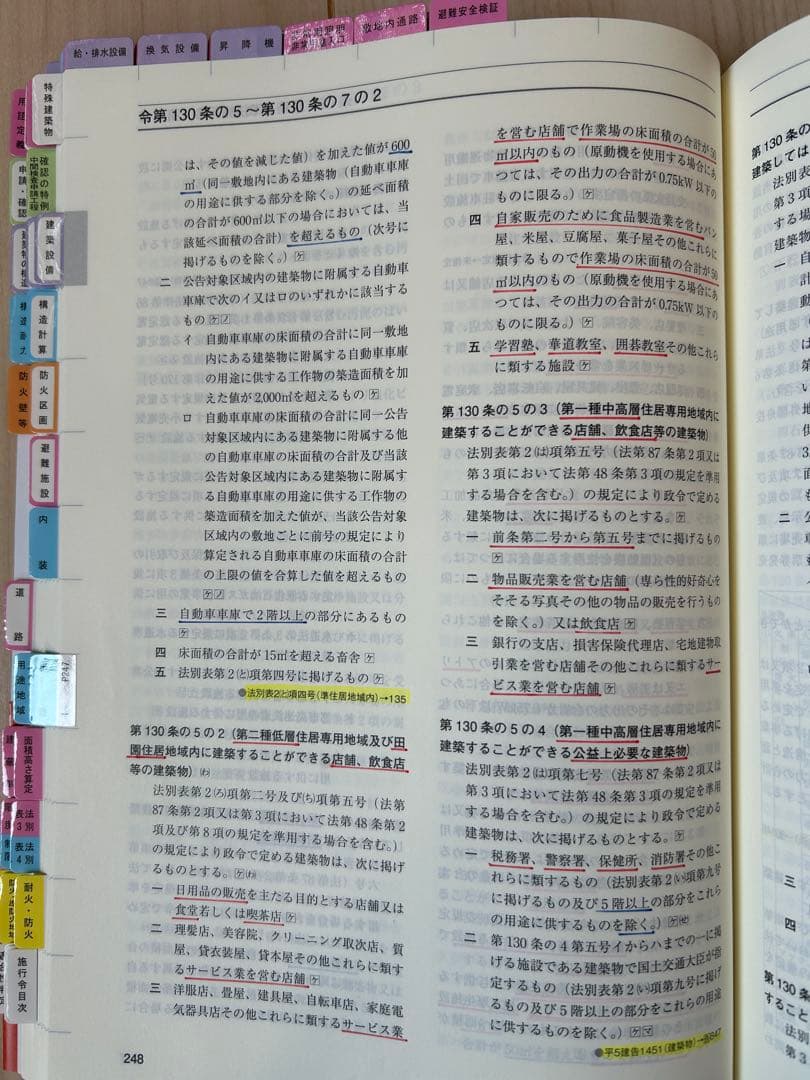 給・排水設備
換気設備
昇降機
敷地内通路
避難安全検証
令第130条の5〜第130条の7の2
特殊建築物
用語定義
確認の特例
中間検査申請工程
申請・確認
建築設備
構造計算
防火区画
防火壁等
避難施設
内装
道路
用途地域
P247
面積高さ算定
法別表3
法別表4
耐火・防火
施行令目次
は、その値を減じた値）を加えた値が600
㎡（同一敷地内にある建築物（自動車車庫
の用途に供する部分を除く。）の延べ面積
の合計が600㎡以下の場合においては、当
該延べ面積の合計）を超えるもの（次号に
掲げるものを除く。）ケ
二 公告対象区域内の建築物に附属する自動車
車庫で次のイ又はロのいずれかに該当する
もの ケノ
イ 自動車車庫の床面積の合計に同一敷地
内にある建築物に附属する自動車車庫
の用途に供する工作物の築造面積を加
えた値が2,000㎡を超えるもの ケ
ロ 自動車車庫の床面積の合計に同一公告
対象区域内にある建築物に附属する他
の自動車車庫の床面積の合計及び当該
公告対象区域内にある建築物に附属す
る自動車車庫の用途に供する工作物の
築造面積を加えた値が、当該公告対象
区域内の敷地ごとに前号の規定により
算定される自動車車庫の床面積の合計
の上限の値を合算した値を超えるもの
ケノ
三 自動車車庫で2階以上の部分にあるもの
ケ
四 床面積の合計が15㎡を超える畜舎 ケ
五 法別表第2㈬項第四号に掲げるもの ケ
●法別表2㈬項四号（準住居地域内）→135
第130条の5の2（第二種低層住居専用地域及び田
園住居地域内に建築することができる店舗、飲食店
等の建築物）(わ)
法別表第2(ろ)項第二号及び(ち)項第五号（法第
87条第2項又は第3項において法第48条第2
項及び第8項の規定を準用する場合を含む。）
の規定により政令で定める建築物は、次に掲げ
るものとする。ケ(わ)
一 日用品の販売を主たる目的とする店舗又は
食堂若しくは喫茶店 ケ
二 理髪店、美容院、クリーニング取次店、質
屋、貸衣装屋、貸本屋その他これらに類す
るサービス業を営む店舗 ケ
三 洋服店、畳屋、建具屋、自転車店、家庭電
気器具店その他これらに類するサービス業
248
を営む店舗で作業場の床面積の合計が50
㎡以内のもの（原動機を使用する場合にあ
つては、その出力の合計が0.75kW以下の
ものに限る。）ケ
四 自家販売のために食品製造業を営むパン
屋、米屋、豆腐屋、菓子屋その他これらに
類するもので作業場の床面積の合計が50
㎡以内のもの（原動機を使用する場合にあ
つては、その出力の合計が0.75kW以下の
ものに限る。）ケ
五 学習塾、華道教室、囲碁教室その他これら
に類する施設 ケ
第130条の5の3（第一種中高層住居専用地域内に
建築することができる店舗、飲食店等の建築物）
法別表第2(は)項第五号（法第87条第2項又は
第3項において法第48条第3項の規定を準用
する場合を含む。）の規定により政令で定める
建築物は、次に掲げるものとする。ケ
一 前条第二号から第五号までに掲げるもの
ケ
二 物品販売業を営む店舗（専ら性的好奇心を
そそる写真その他の物品の販売を行うもの
を除く。）又は飲食店 ケ
三 銀行の支店、損害保険代理店、宅地建物取
引業を営む店舗その他これらに類するサー
ビス業を営む店舗 ケ
第130条の5の4（第一種中高層住居専用地域内に
建築することができる公益上必要な建築物）
法別表第2(は)項第七号（法第87条第2項又は
第3項において法第48条第3項の規定を準用
する場合を含む。）の規定により政令で定める
建築物は、次に掲げるものとする。ケ
一 税務署、警察署、保健所、消防署その他こ
れらに類するもの（法別表第2(い)項第九号
に掲げるもの及び5階以上の部分をこれら
の用途に供するものを除く。）ケ
二 第130条の4第五号イからハまでの一に掲
げる施設である建築物で国土交通大臣が指
定するもの（法別表第2(い)項第九号に掲げ
るもの及び5階以上の部分をこれらの用途
に供するものを除く。）ケマ
●平5建告1451（建築物）→告647